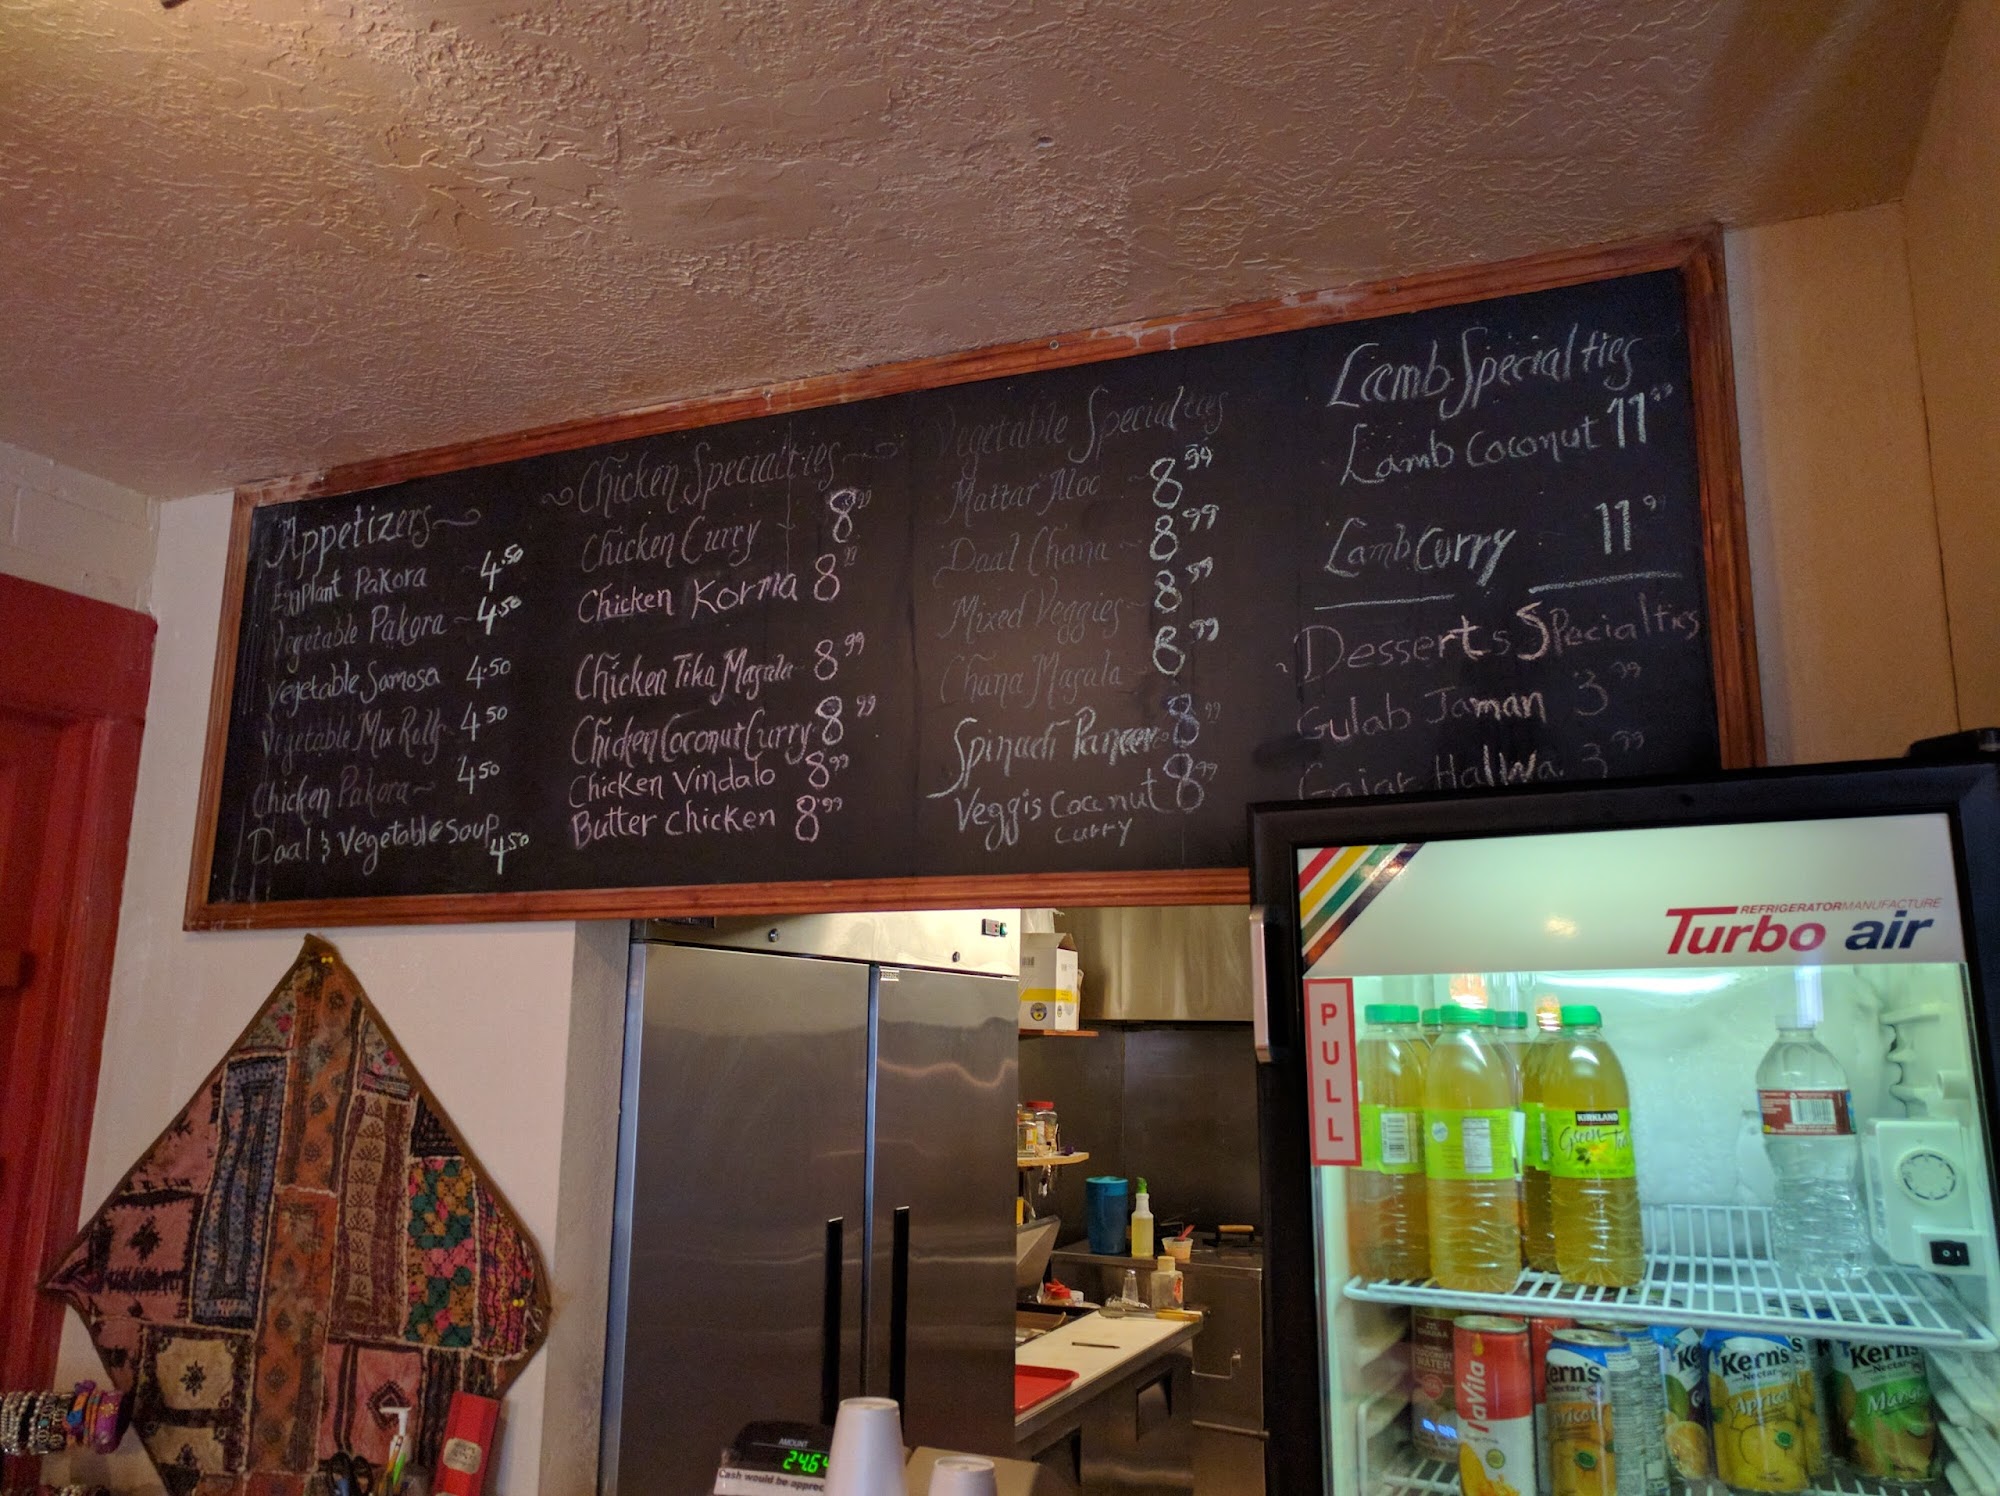 Appetizers
Exnplant Pakora 4.50
Vegetable Pakora 4.50
Vegetable Samosa 4.50
Vegetable Mix Rolls 4.50
Chicken Pakora 4.50
Daal & Vegetable Soup 4.50
Chicken Specialties
Chicken Curry 8.99
Chicken Korma 8
Chicken Tika Masala 8.99
Chicken Coconut Curry 8.99
Chicken Vindalo 8.99
Butter Chicken 8.99
Vegetable Specialties
Mattar Aloo 8.99
Daal Chana 8.99
Mixed Veggies 8.99
Chana Masala 8.99
Spinach Paneer 8.99
Veggis Coconut 8.99
Curry
Lamb Specialties
Lamb Coconut 11.99
Lamb Curry 11.9
Desserts Specialties
Gulab Jaman 3.99
Gajar Halwa 3.99
REFRIGERATOR MANUFACTURE
Turbo air
PULL
KIRKLAND
Green Tea
WATER
Kern's
Nectar
Apricot
Kern's
Nectar
Apricot
Kern's
Nectar
Mango
AMOUNT
24.64
Cash would be apprec